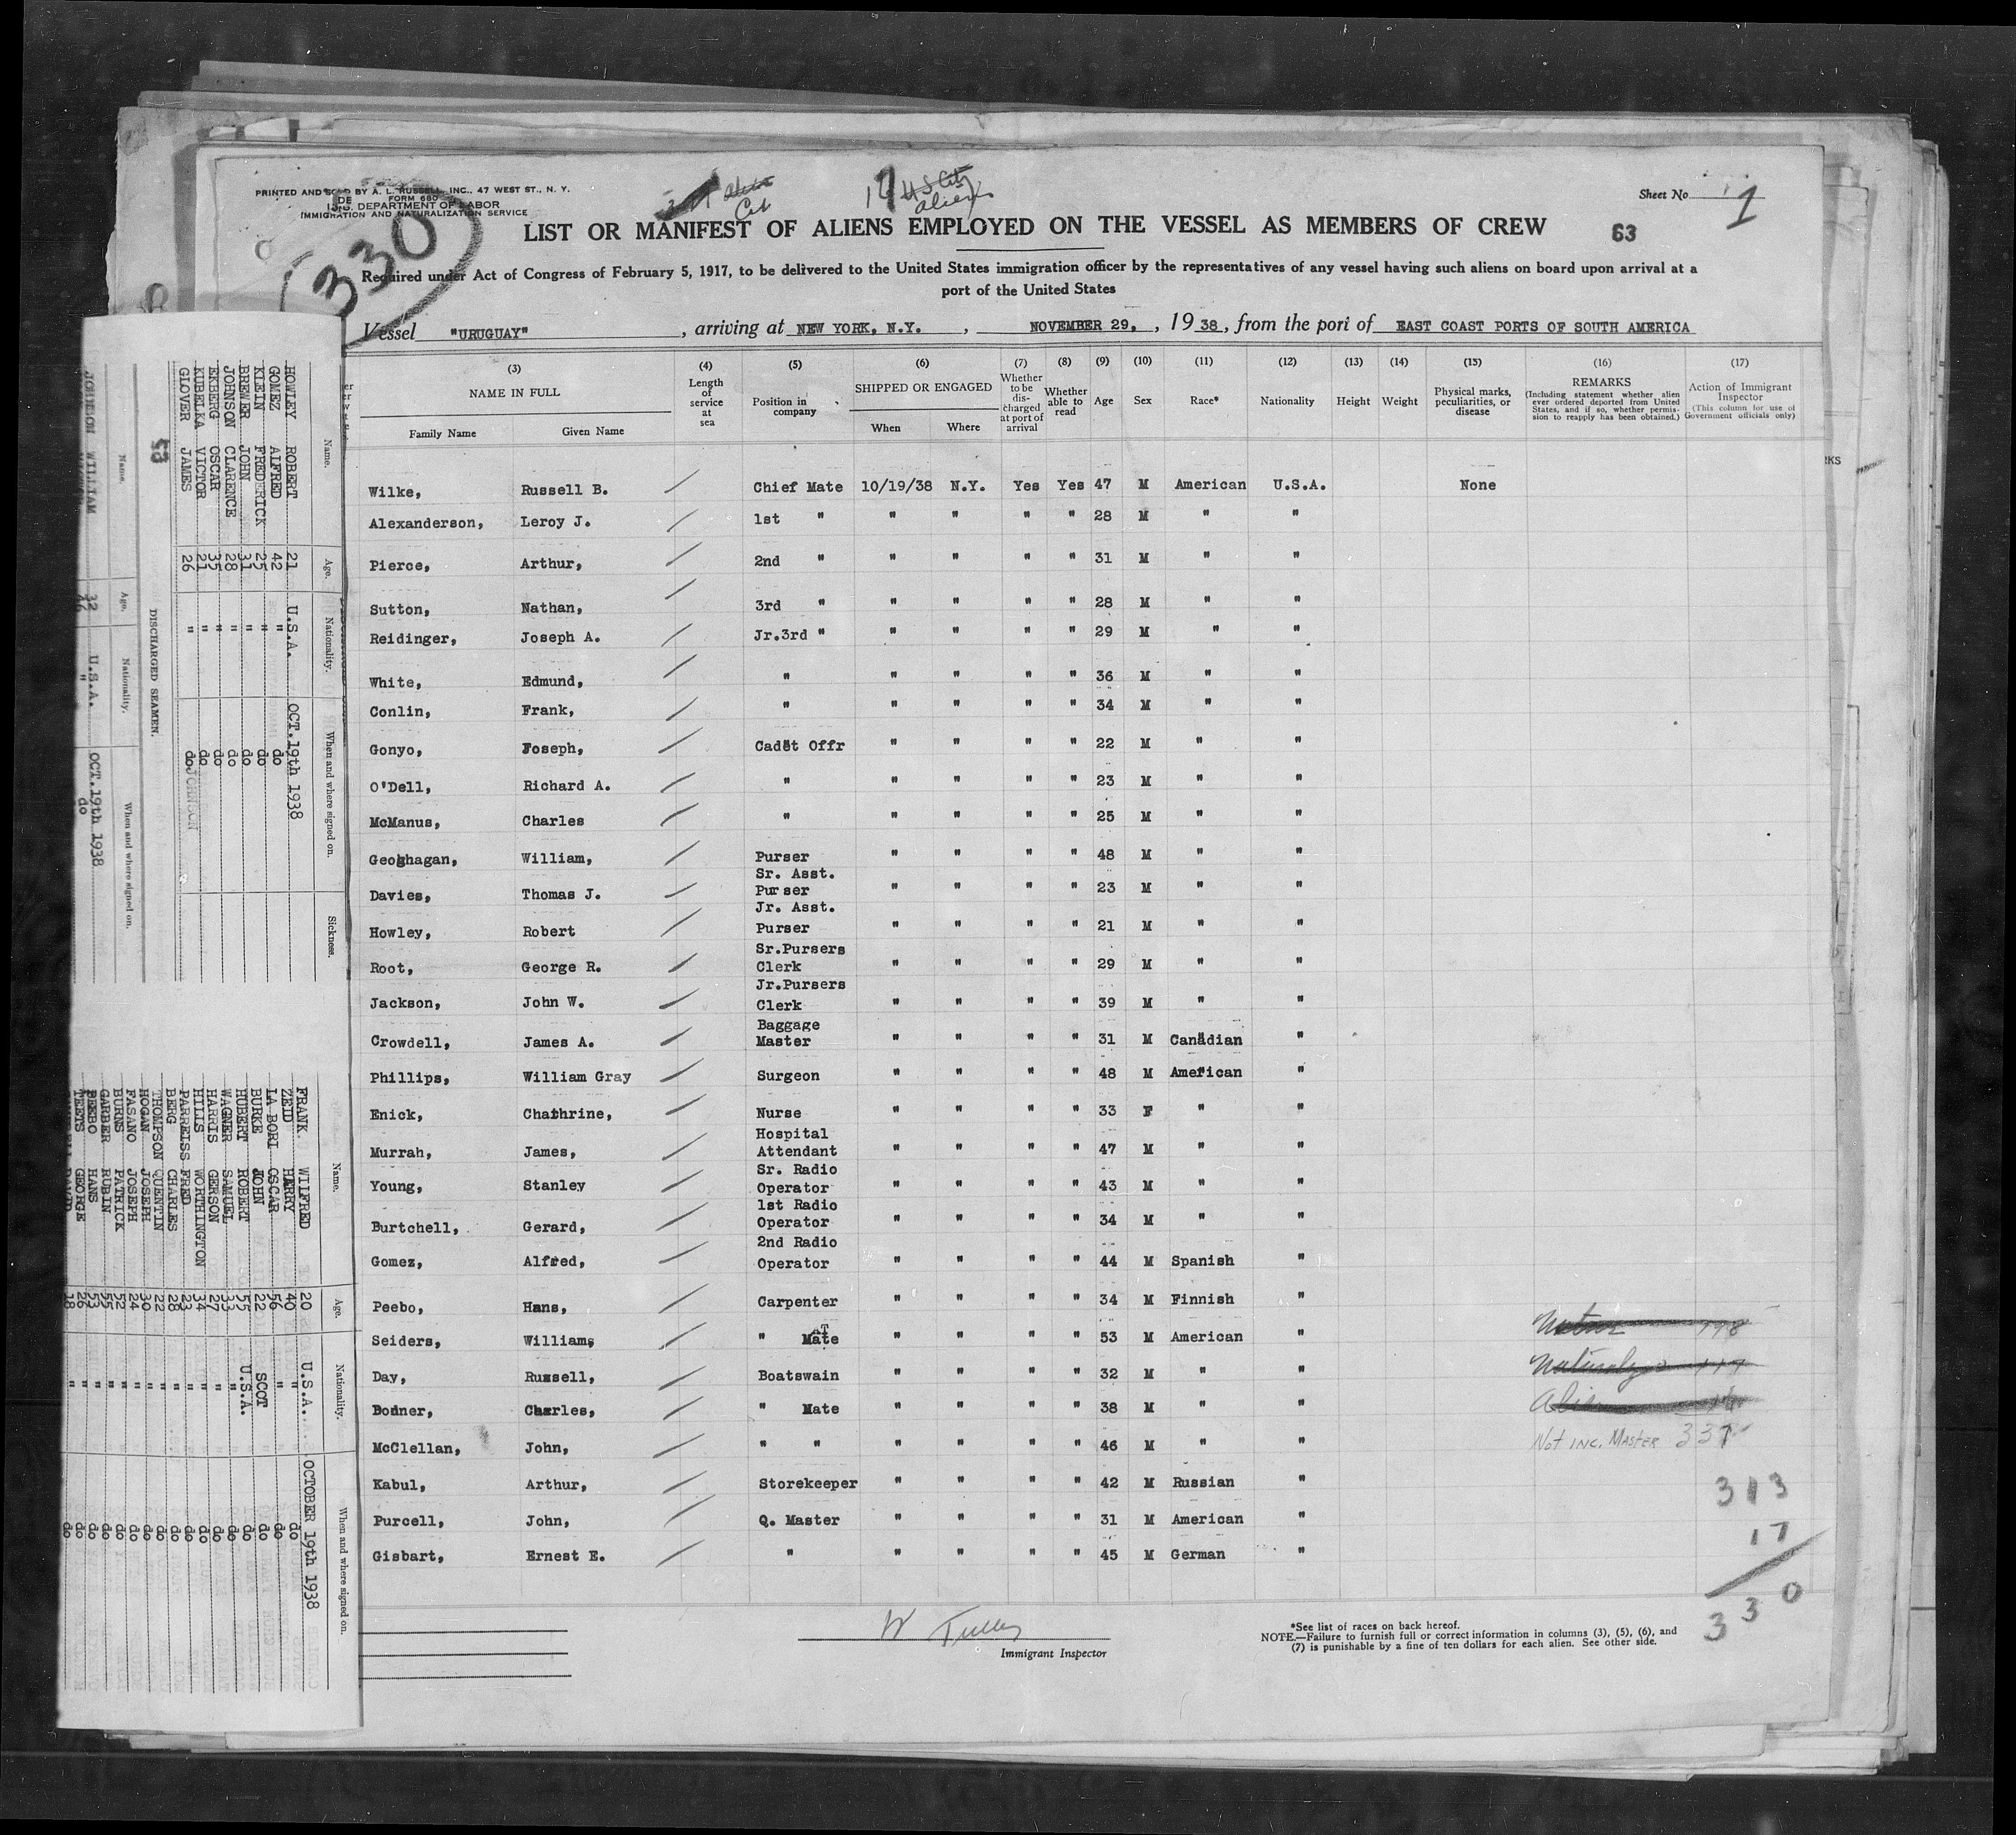 PRINTED AND SOLD BY A. L. RUSSELL, INC., 47 WEST ST., N. Y.
FORM 680
U.S. DEPARTMENT OF LABOR
IMMIGRATION AND NATURALIZATION SERVICE
330
17 U S Citz
aliens
Sheet No 1
LIST OR MANIFEST OF ALIENS EMPLOYED ON THE VESSEL AS MEMBERS OF CREW
63
Required under Act of Congress of February 5, 1917, to be delivered to the United States immigration officer by the representatives of any vessel having such aliens on board upon arrival at a
port of the United States
Vessel "URUGUAY", arriving at NEW YORK, N.Y., NOVEMBER 29, , 1938, from the port of EAST COAST PORTS OF SOUTH AMERICA
(3) (4) (5) (6) (7) (8) (9) (10) (11) (12) (13) (14) (15) (16) (17)
NAME IN FULL
Family Name Given Name
Length of service at sea
Position in company
SHIPPED OR ENGAGED
When Where
Whether to be discharged at port of arrival
Whether able to read
Age
Sex
Race*
Nationality
Height
Weight
Physical marks, peculiarities, or disease
REMARKS
(Including statement whether alien ever ordered deported from United States, and if so, whether permission to reapply has been obtained.)
Action of Immigrant Inspector
(This column for use of Government officials only)
Wilke, Russell B. Chief Mate 10/19/38 N.Y. Yes Yes 47 M American U.S.A. None
Alexanderson, Leroy J. 1st " " " " " 28 M " "
Pierce, Arthur, 2nd " " " " " 31 M " "
Sutton, Nathan, 3rd " " " " " 28 M " "
Reidinger, Joseph A. Jr.3rd " " " " " 29 M " "
White, Edmund, " " " " " 36 M " "
Conlin, Frank, " " " " " 34 M " "
Gonyo, Joseph, Cadet Offr " " " " 22 M " "
O'Dell, Richard A. " " " " " 23 M " "
McManus, Charles " " " " " 25 M " "
Geoghagan, William, Purser " " " " 48 M " "
Davies, Thomas J. Sr. Asst. Purser " " " " 23 M " "
Howley, Robert Jr. Asst. Purser " " " " 21 M " "
Root, George R. Sr.Pursers Clerk " " " " 29 M " "
Jackson, John W. Jr.Pursers Clerk " " " " 39 M " "
Crowdell, James A. Baggage Master " " " " 31 M Canadian "
Phillips, William Gray Surgeon " " " " 48 M American "
Enick, Chathrine, Nurse " " " " 33 F " "
Murrah, James, Hospital Attendant " " " " 47 M " "
Young, Stanley Sr. Radio Operator " " " " 43 M " "
Burtchell, Gerard, 1st Radio Operator " " " " 34 M " "
Gomez, Alfred, 2nd Radio Operator " " " " 44 M Spanish "
Peebo, Hans, Carpenter " " " " 34 M Finnish "
Seiders, William, " Mate " " " " 53 M American "
Day, Russell, Boatswain " " " " 32 M " "
Bodner, Charles, " Mate " " " " 38 M " "
McClellan, John, " " " " " " 46 M " "
Kabul, Arthur, Storekeeper " " " " 42 M Russian "
Purcell, John, Q. Master " " " " 31 M American "
Gisbart, Ernest E. " " " " " 45 M German "
NOT INC. MASTER 337
313
17
330
W Tulley
Immigrant Inspector
*See list of races on back hereof.
NOTE.—Failure to furnish full or correct information in columns (3), (5), (6), and
(7) is punishable by a fine of ten dollars for each alien. See other side.
Name. Age. Nationality. When and where signed on. Sickness.
HOWLEY ROBERT 21 U.S.A. OCT.19th 1938
GOMEZ ALFRED 42 " do
KLEIN FREDERICK 25 " do
BREWER JOHN 31 " do
JOHNSON CLARENCE 28 " do
EKBERG OSCAR 35 " do
KUBELKA VICTOR 21 " do
GLOVER JAMES 26 " do
63
DISCHARGED SEAMEN.
Name. Age. Nationality. When and where signed on.
JOHNSON WILLIAM 32 U.S.A. OCT.19th 1938
Name. Age. Nationality. When and where signed on.
FRANK. WILFRED 20 U.S.A. OCTOBER 19th 1938
ZEID HARRY 40 " do
LA BORI OSCAR 56 " do
BURKE JOHN 22 SCOT do
HUBERT ROBERT 55 U.S.A. do
WAGNER SAMUEL 33 " do
HARRIS GERSON 27 " do
HILLS WORTHINGTON 34 " do
PARREISS FRED 23 " do
BERG CHARLES 28 " do
THOMPSON QUENTIN 22 " do
HOGAN JOSEPH 30 " do
FASANO JOSEPH 24 " do
BURNS PATRICK 52 " do
GARBER RUBIN 55 " do
PEEBO HANS 53 " do
TEETS GEORGE 26 " do